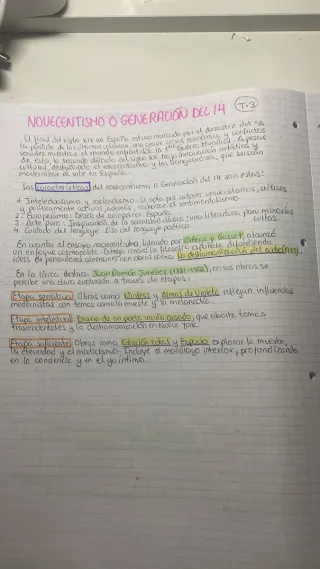 NOVECENTISMO O GENERACIÓN DEL 14 T-3
El final del siglo XIX en España estuvo marcado por el desastre del 98
la pérdida de las últimas colonias, una grave crisis económica y conflictos
sociales mientras el mundo enfrentaba la Guerra Mundial. A pesar
de esto, la segunda década del siglo XX trajo innovación artística y
cultural, destacando el novecentismo y las vanguardias, que buscaban
modernizar el arte en España.
Las características del novecentismo o Generación del 14 son estas:
1. Intelectualismo y racionalismo: Lo forman autores universitarios, activos
y políticamente activos, además, rechazan el sentimentalismo
2. Europeísmo: Deseo de europeizar España.
3. Arte puro: Inspiración de la sobriedad clásica: una literatura para minorías cultas.
4. Cuidado del lenguaje: Uso del lenguaje poético.
En cuanto al ensayo novecentista, liderado por Ortega y Gasset, alcanzó
un enfoque cosmopolita. Ortega renovó la filosofía española difundiendo
ideas de pensadores alemanes con obras como La deshumanización del arte (1925).
En la lírica destaca Juan Ramón Jiménez (1881-1958), en sus obras se
percibe una clara evolución a través de etapas:
Etapa sensitiva: Obras como Ninfeas y Almas de violeta reflejan influencias
modernistas con temas como la muerte y la melancolía.
Etapa intelectual: Diario de un poeta recién casado, que aborda temas
trascendentales y la deshumanización en Nueva York.
Etapa suficiente: Obras como Estación total y Espacio exploran la muerte,
la eternidad y el misticismo. Incluye el monólogo interior, profundizando
en la conciencia y en el yo íntimo.